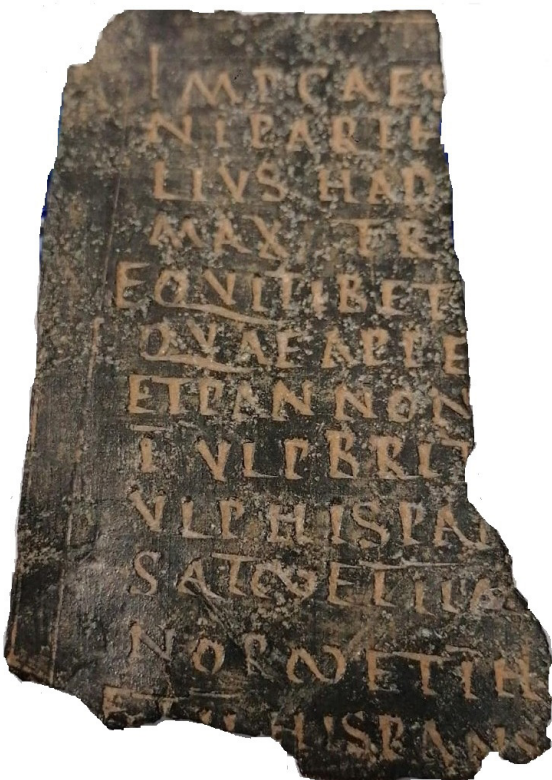 IMP CAES
NI PARTH
LIVS HAD
MAX TR
EQVITIB ET
QVAE APPE
ET PANNON
I VLP BRIT
VLP HISPA
ET
NOR ∞ ET I H
ET II HISPAN